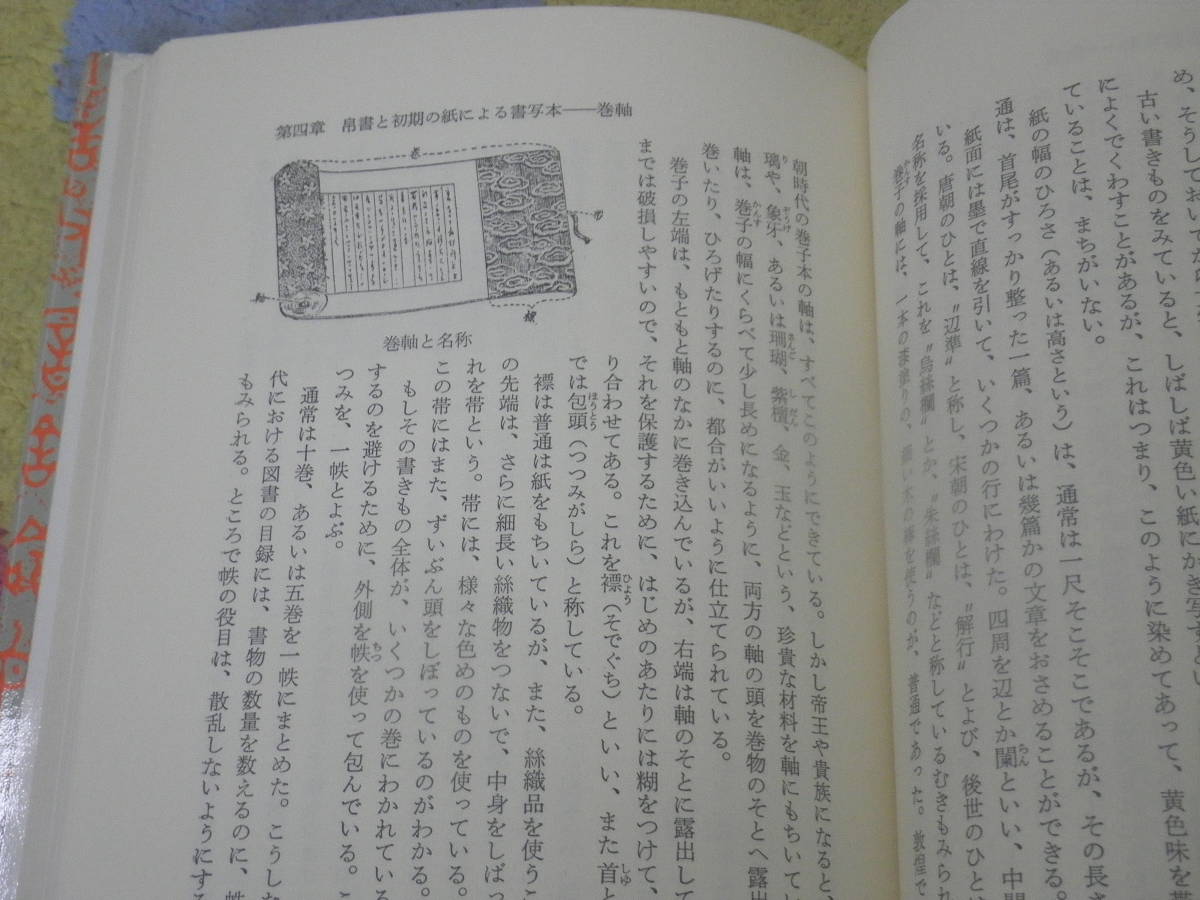 め、そうしておいてな
古い書きものをみていると、しばしば黄色い紙にかき写
によくでくわすことがあるが、これはつまり、このように染めてあって、黄色味を帯
ていることは、まちがいない。
紙の幅のひろさ（あるいは高さという）は、通常は一尺そこそこであるが、その長さ
通は、首尾がすっかり整った一篇、あるいは幾篇かの文章をおさめることができる。
紙面には墨で直線を引いて、いくつかの行にわけた。四周を辺とか闌といい、中間
いる。唐朝のひとは、〝辺準〟と称し、宋朝のひとは、〝解行〟とよび、後世のひと
名称を採用して、これを〝烏絲欄〟とか、〝朱絲欄〟などと称しているむきもみられ
巻子の軸には、一本の漆塗りの、細い木の棒を使うのが、普通であった。敦煌で
第四章 帛書と初期の紙による書写本――巻軸
巻
帯
軸
褾
巻軸と名称
朝時代の巻子本の軸は、すべてこのようにできている。しかし帝王や貴族になると、
璃や、象牙、あるいは珊瑚、紫檀、金、玉などという、珍貴な材料を軸にもちいて
軸は、巻子の幅にくらべて少し長めになるように、両方の軸の頭を巻物のそとへ露出
巻いたり、ひろげたりするのに、都合がいいように仕立てられている。
巻子の左端は、もともと軸のなかに巻き込んでいるが、右端は軸のそとに露出して
までは破損しやすいので、それを保護するために、はじめのあたりには糊をつけて、
り合わせてある。これを褾（そでぐち）といい、また首と
では包頭（つつみがしら）と称している。
褾は普通は紙をもちいているが、また、絲織品を使うこ
の先端は、さらに細長い絲織物をつないで、中身をしばっ
れを帯という。帯には、様々な色めのものを使っている。
この帯にはまた、ずいぶん頭をしぼっているのがわかる。
もしその書きもの全体が、いくつかの巻にわかれている
するのを避けるために、外側を帙を使って包んでいる。こ
つみを、一帙とよぶ。
通常は十巻、あるいは五巻を一帙にまとめた。こうした
代における図書の目録には、書物の数量を数えるのに、帙
もみられる。ところで帙の役目は、散乱しないようにする